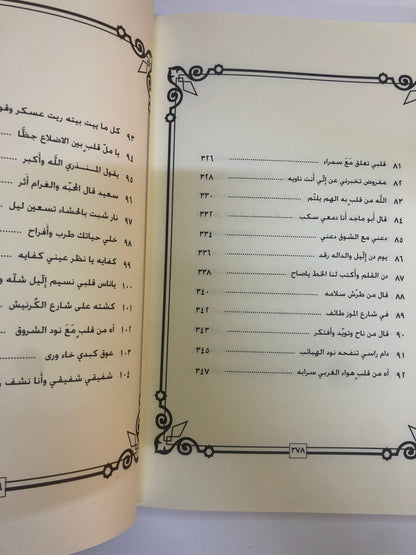 ٨١ قلبي تعلق مع سمراء ........ ٣٢٦
٨٢ مفروض تخبرني عن إلّي أنت ناويه ........ ٣٢٨
٨٣ اللّه من قلب به الهم يلتم ........ ٣٣٠
٨٤ قال أبو ماجد أنا دمعي سكب ........ ٣٣٢
٨٥ دعني مع الشوق دعني ........ ٣٣٤
٨٦ يوم دن إلّيل والداله رقد ........ ٣٣٦
٨٧ دن القلم وأكتب لنا الخط ياصاح ........ ٣٣٨
٨٨ قال من طرّش سلامه ........ ٣٤٠
٨٩ في شارع الموز طائف ........ ٣٤٢
٩٠ قال من ناح وتويّد وأفتكر ........ ٣٤٣
٩١ دام راسي تنفحه نود الهبائب ........ ٣٤٥
٩٢ آه من قلبٍ هواء الغربي سرابه ........ ٣٤٧
٣٧٨
٩٣ كل ما بيت بيته ريت عسكر
٩٤ يا ملّ قلبٍ بين الاضلاع جظّا
٩٥ يقول المنذري اللّه وأكبر
٩٦ سعيد قال المحبّه والغرام أثر
٩٧ نار شبت بالحشاء تسعين ليل
٩٨ خلي حياتك طرب وأفراح
٩٩ كفايه يا نظر عيني كفايه
١٠٠ ياناس قلبي نسيم إلّيل شلّه
١٠١ كشته على شارع الكُرنيش
١٠٢ آه من قلبٍ مَعَ نود الشروق
١٠٣ عوق كبدي خاء ورى
١٠٤ شفيقي شفيقي وأنا نشف